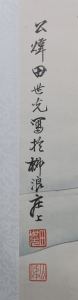 公煒田世光寫於柳浪莊上